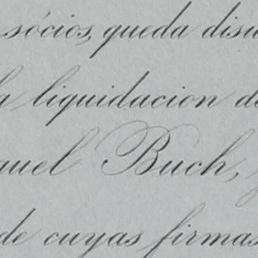 sócios, queda disu
la liquidacion de
guel Buch,
de cuyas firmas